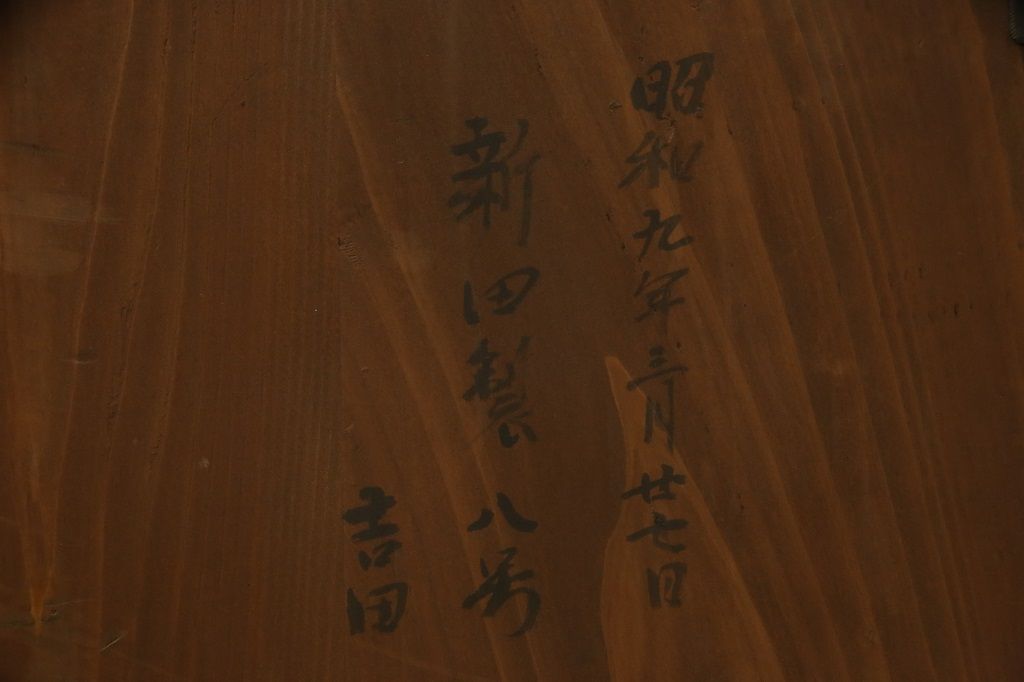 昭和九年三月廿七日
新田製 八号
吉田